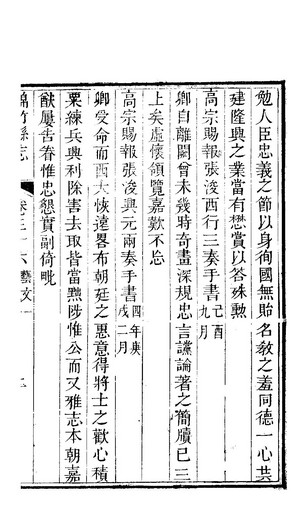 勉人臣忠義之節以身徇國無貽名敎之羞同德一心共
建隆興之業當有懋賞以答殊勲
高宗賜報張浚西行三奏手書己酉九月
卿自離闕曾未幾時奇畫深規忠言讜論著之簡牘已三
上矣虛懷領覽嘉歎不忘
高宗賜報張浚興元兩奏手書四年庚戌二月
卿受命而西大恢遠畧布朝廷之惠意得將士之歡心積
粟練兵興利除害去取皆當黜陟惟公而又雅志本朝嘉
猷屢吿眷惟忠懇實副倚毗
綿竹縣志
卷三十六藝文一